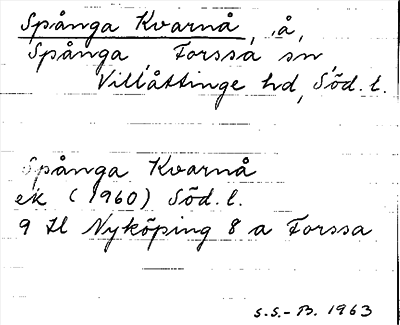 Spånga Kvarnå, å,
Spånga, Forssa sn
Villåttinge hd, Söd. l.
Spånga Kvarnå
ek (1960) Söd. l.
9 H Nyköping 8 a Forssa
S.S.-B. 1963